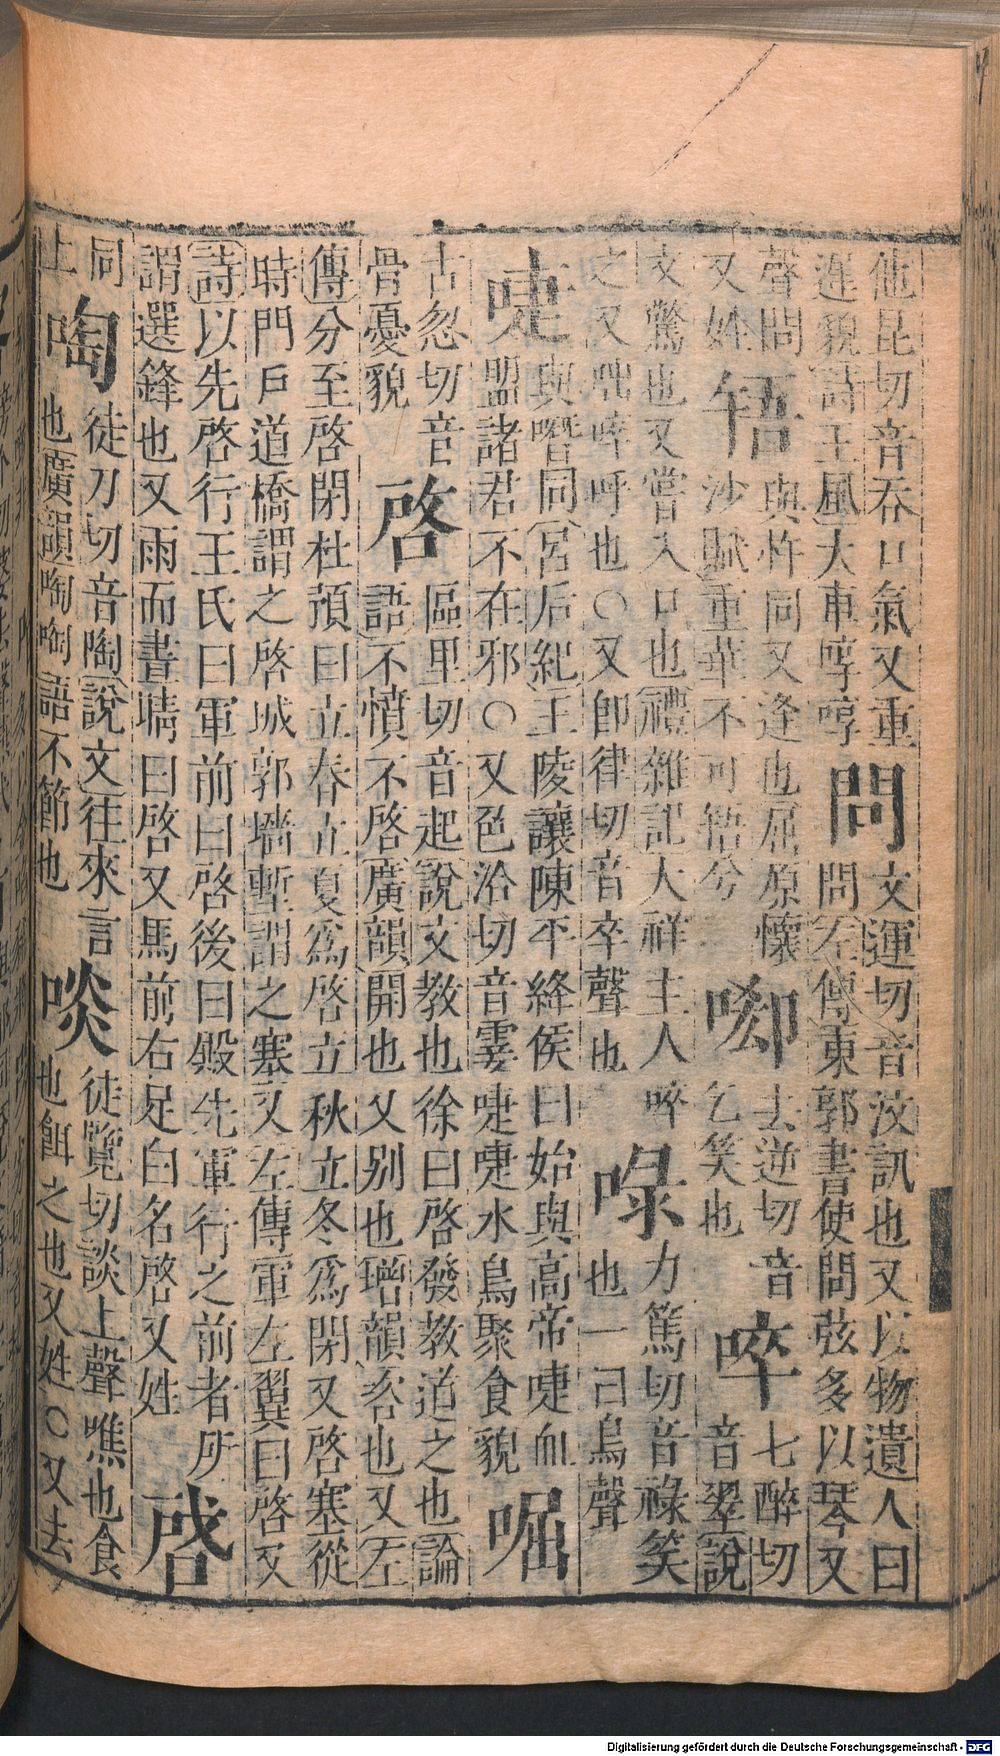 他昆切音吞口氣又重
遲貌詩王風大車啍啍
問
文運切音汶訊也又以物遺人曰
問左傳東郭書使問弦多以琴又
聲問
又姓
啎
與忤同又逢也屈原懷
沙賦重華不可啎兮
啣
去逆切音
乞笑也
啐
七醉切
音翠說
文驚也又嘗入口也禮雜記大祥主人啐
之又啐呼也〇又卽律切音卒聲也
㖨
力篤切音祿笑
也一曰鳥聲
啑
與喋同呂后紀王陵讓陳平絳侯曰始與高帝啑血
盟諸君不在邪〇又色洽切音霎啑啑水鳥聚食貌
啒
古忽切音
骨憂貌
啓
區里切音起說文教也徐曰啓發教道之也論
語不憤不啓廣韻開也又别也增韻客也又左
傳分至啓閉杜預曰立春立夏爲啓立秋立冬爲閉又啓塞從
時門戸道橋謂之啓城郭墻塹謂之塞又左傳軍左翼曰啓又
詩以先啓行王氏曰軍前曰啓後曰殿先軍行之前者所
謂選鋒也又雨而晝晴曰啓又馬前右足白名啓又姓
啔
同
上
啕
徒刀切音陶說文往來言
也廣韻啕啕語不節也
啖
徒覽切談上聲噍也食
也餌之也又姓〇又去
Digitalisierung gefördert durch die Deutsche Forschungsgemeinschaft - DFG